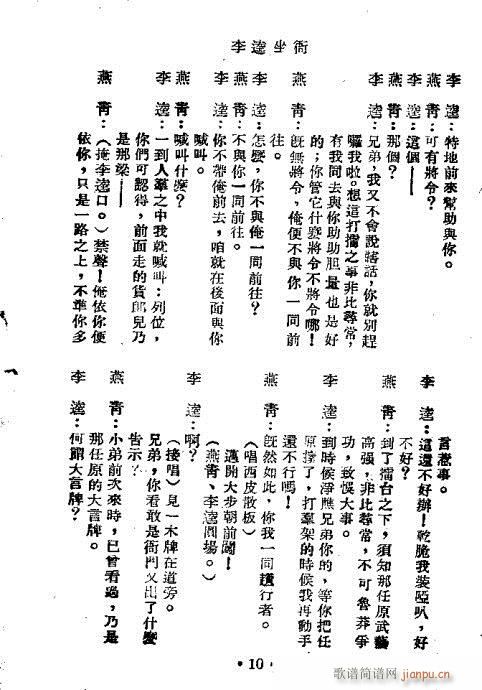 李逵坐衙
李　逵：特地前來幫助與你。
燕　青：可有將令？
李　逵：這個——
燕　青：那個？
李　逵：兄弟，我又不會說瞎話，你就別趕
囉我啦。想這打擂之事非比尋常，
有我同去與你助助胆量也是好
的；你管它什麼將令不將令哪！
燕　青：旣無將令，俺便不與你一同前
往。
李　逵：怎麼，你不與俺一同前往？
燕　青：不與你一同前往。
李　逵：你不帶俺前去，咱就在後面與你
喊叫。
燕　青：喊叫什麼？
李　逵：一到人羣之中我就喊叫：列位，
你們可認得，前面走的貨郎兒乃
是那梁——
燕　青：（掩李逵口。）禁聲！俺依你便
依你，只是一路之上，不準你多
言惹事。
李　逵：這還不好辦！乾脆我裝啞叭，好
不好？
燕　青：到了擂台之下，須知那任原武藝
高强，非比尋常，不可魯莽爭
功，致悞大事。
李　逵：到時候淨瞧兄弟你的，等你把任
原撂了，打羣架的時候我再動手
還不行嗎！
燕　青：旣然如此，你我一同趲行者。
（唱西皮散板）
邁開大步朝前闖！
（燕青、李逵圓場。）
李　逵：啊？
（接唱）見一木牌在道旁。
兄弟，你看敢是衙門又出了什麼
告示？
燕　青：小弟前次來時，已曾看過，乃是
那任原的大言牌。
李　逵：何謂大言牌？
• 10 •
歌谱简谱网
jianpu.cn